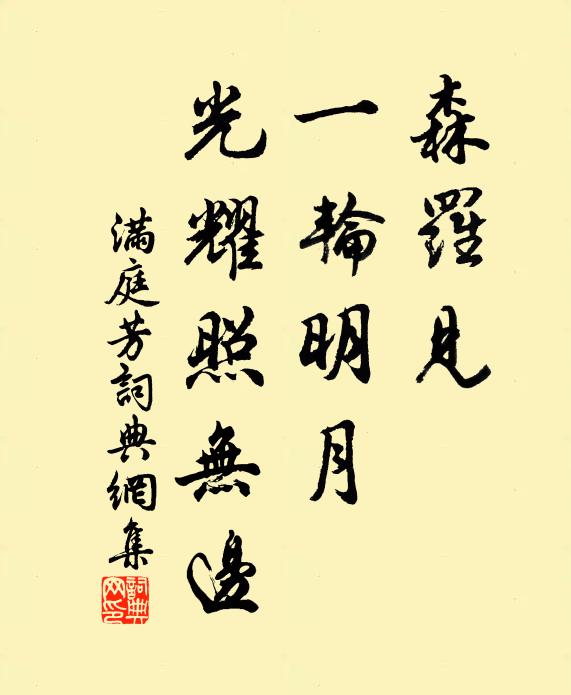 森羅見
一輪明月
光耀照無邊
滿庭芳詞典網集
詞典网印